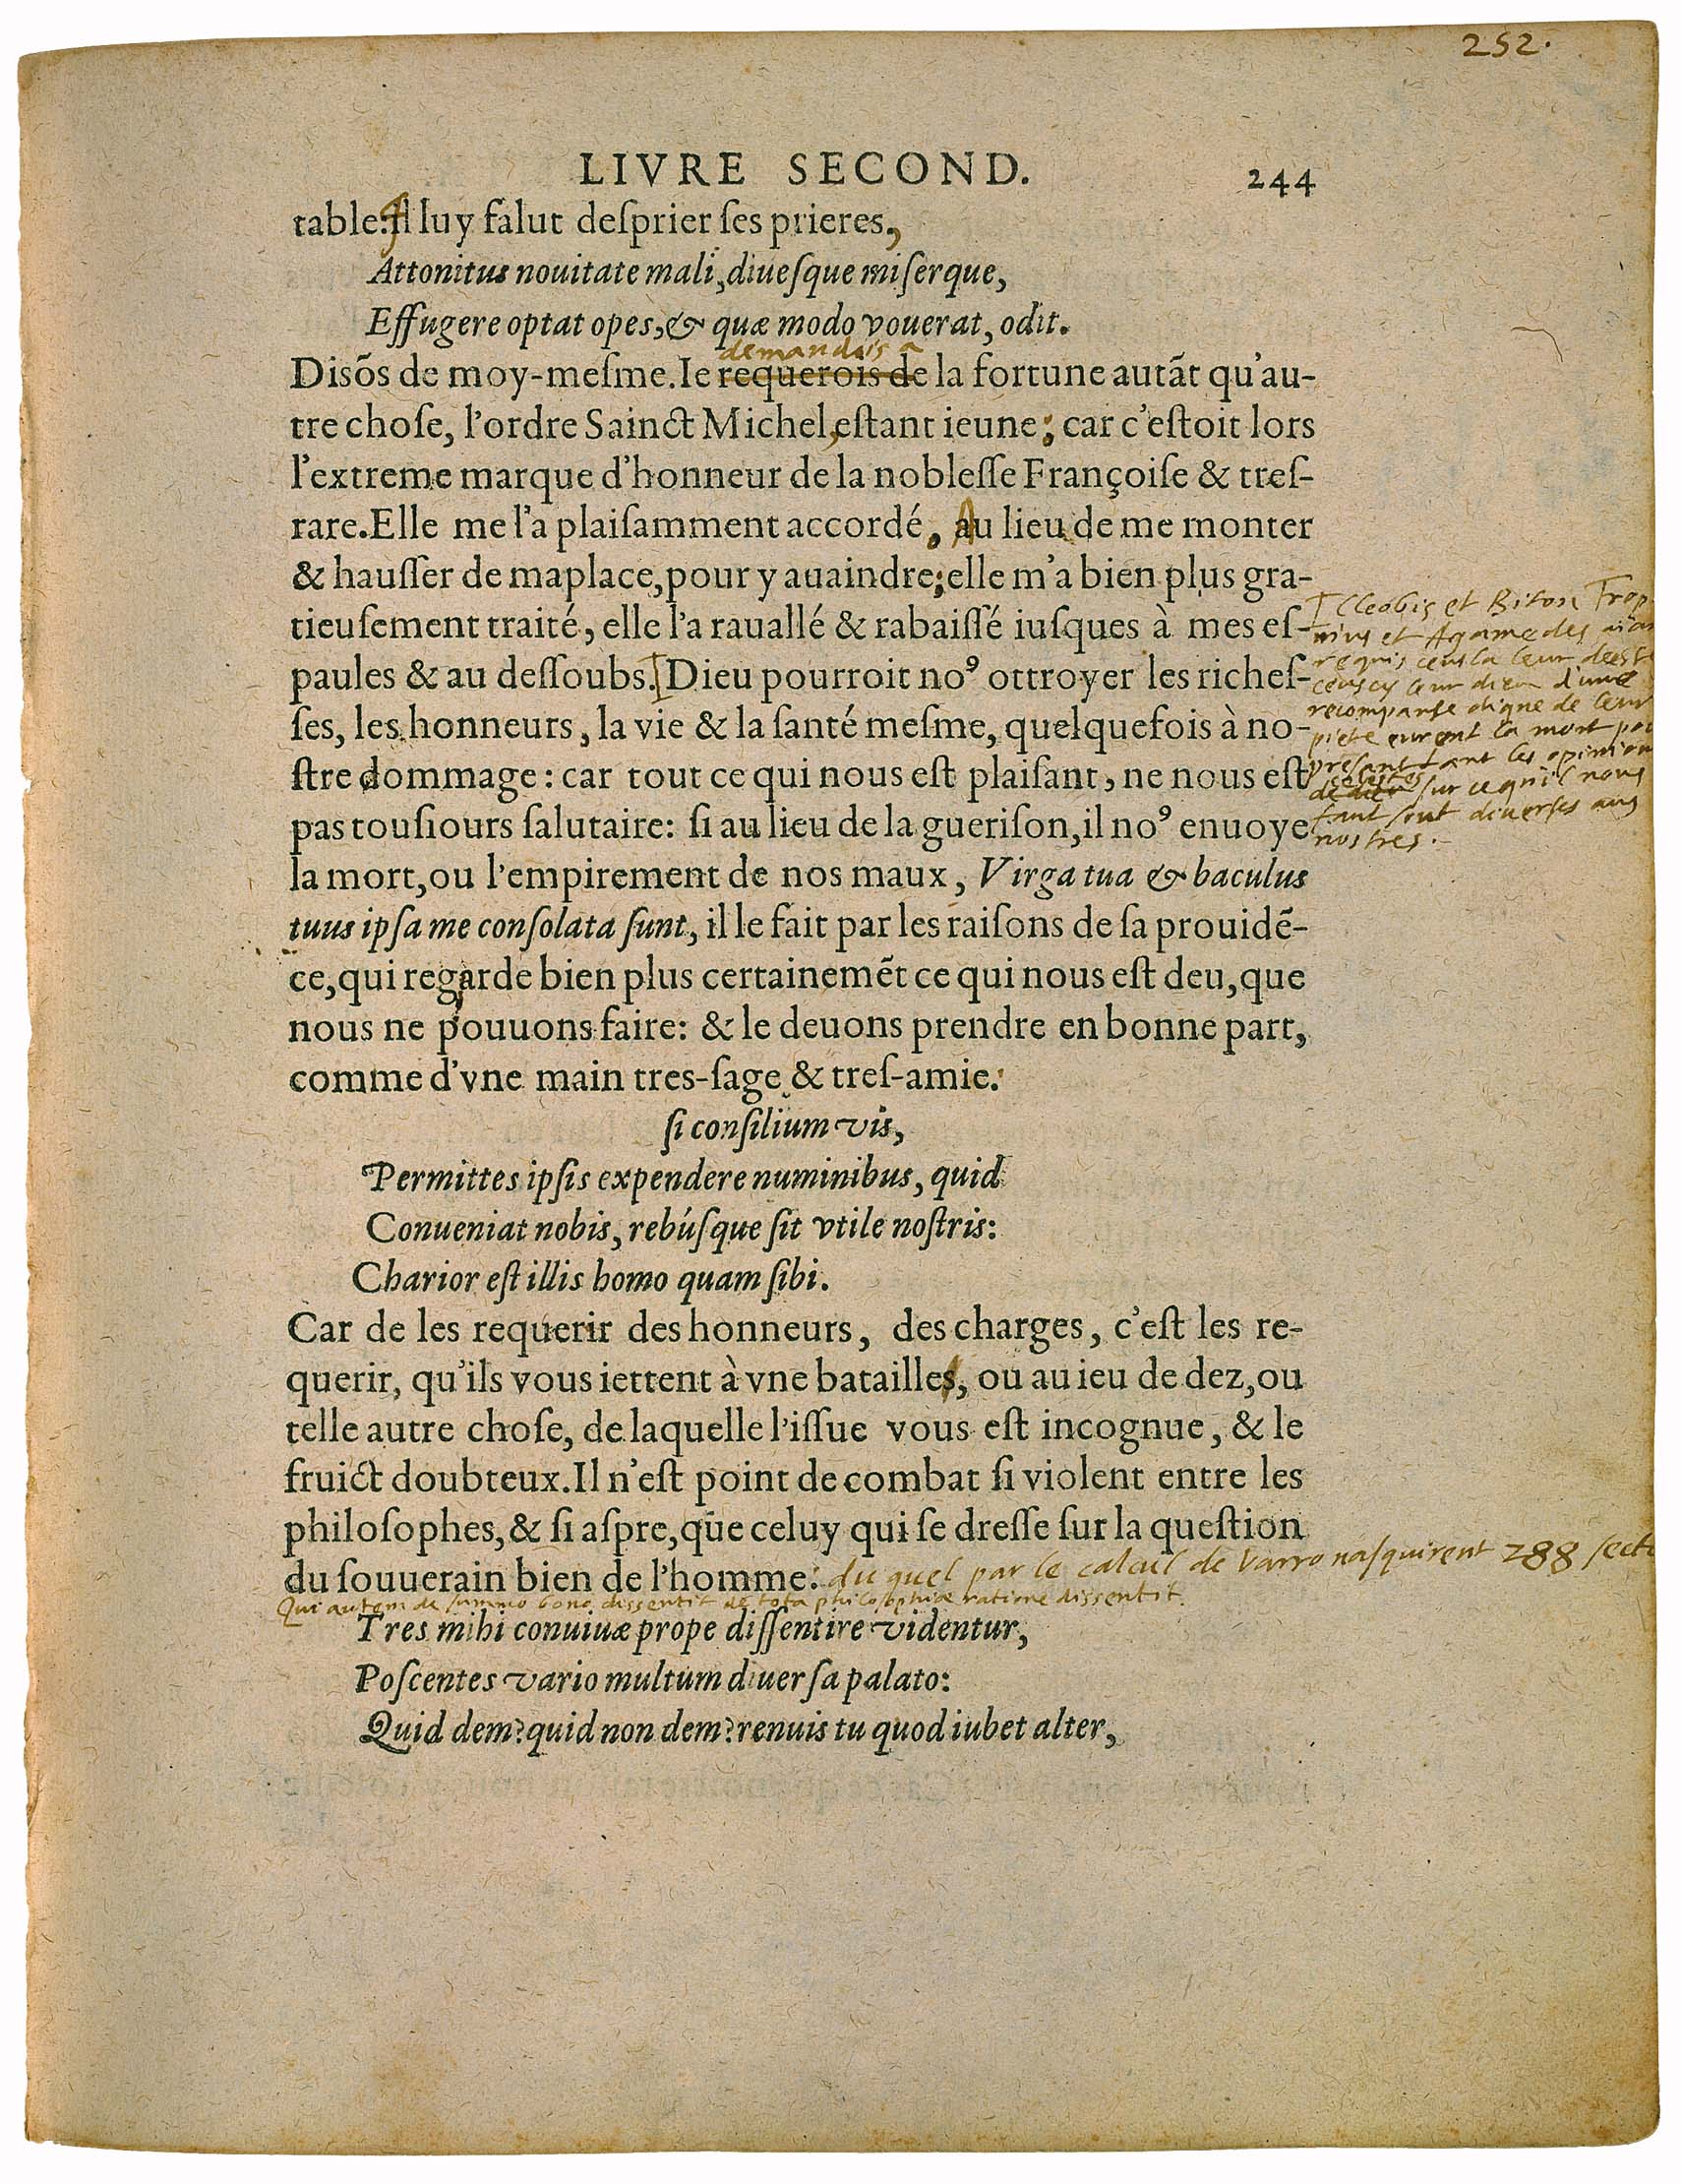 252.
LIVRE SECOND. 244
table. Il luy falut deſprier ſes prieres,
Attonitus nouitate mali, diueſque miſerque,
Effugere optat opes, & quæ modo vouerat, odit.
demandois a
Disõs de moy-meſme. Ie requerois de la fortune autãt qu'au-
tre choſe, l'ordre Sainct Michel, eſtant ieune; car c'eſtoit lors
l'extreme marque d'honneur de la nobleſſe Françoiſe & treſ-
rare. Elle me l'a plaiſamment accordé, Au lieu de me monter
& hauſſer de maplace, pour y auaindre; elle m'a bien plus gra-
tieuſement traité, elle l'a rauallé & rabaiſſé iuſques à mes eſ-
paules & au deſſoubs. Dieu pourroit noꝰ ottroyer les richeſ-
ſes, les honneurs, la vie & la ſanté meſme, quelquefois à no-
ſtre dommage: car tout ce qui nous eſt plaiſant, ne nous eſt
pas touſiours ſalutaire: ſi au lieu de la gueriſon, il noꝰ enuoye
la mort, ou l'empirement de nos maux, Virga tua & baculus
tuus ipſa me conſolata ſunt, il le fait par les raiſons de ſa prouidẽ-
ce, qui regarde bien plus certainemẽt ce qui nous eſt deu, que
nous ne pouuons faire: & le deuons prendre en bonne part,
comme d'vne main tres-ſage & treſ-amie.
Cleobis et Biton Trop
nius et Agamedes aïan
requis ceus la leur deesse
ceuscy leur dieu d'une
recompanse digne de leur
pieté eurent la mort pour
presant tant les opinions
celestes
sur ce qu'il nous
faut sont diverses aus
nostres.
ſi conſilium vis,
Permittes ipſis expendere numinibus, quid
Conueniat nobis, rebúſque ſit vtile noſtris:
Charior eſt illis homo quam ſibi.
Car de les requerir des honneurs, des charges, c'eſt les re-
querir, qu'ils vous iettent à vne batailles, ou au ieu de dez, ou
telle autre choſe, de laquelle l'iſſue vous eſt incognue, & le
fruict doubteux. Il n'eſt point de combat ſi violent entre les
philoſophes, & ſi aſpre, que celuy qui ſe dreſſe ſur la queſtion
du ſouuerain bien de l'homme: du quel par le calcul de Varro naſquirent 288 ſect
Qui autem de summo bono dissentit de tota philosophiæ ratione dissentit.
Tres mihi conuiuæ prope diſſentire videntur,
Poſcentes vario multum diuerſa palato:
Quid dem? quid non dem? renuis tu quod iubet alter,